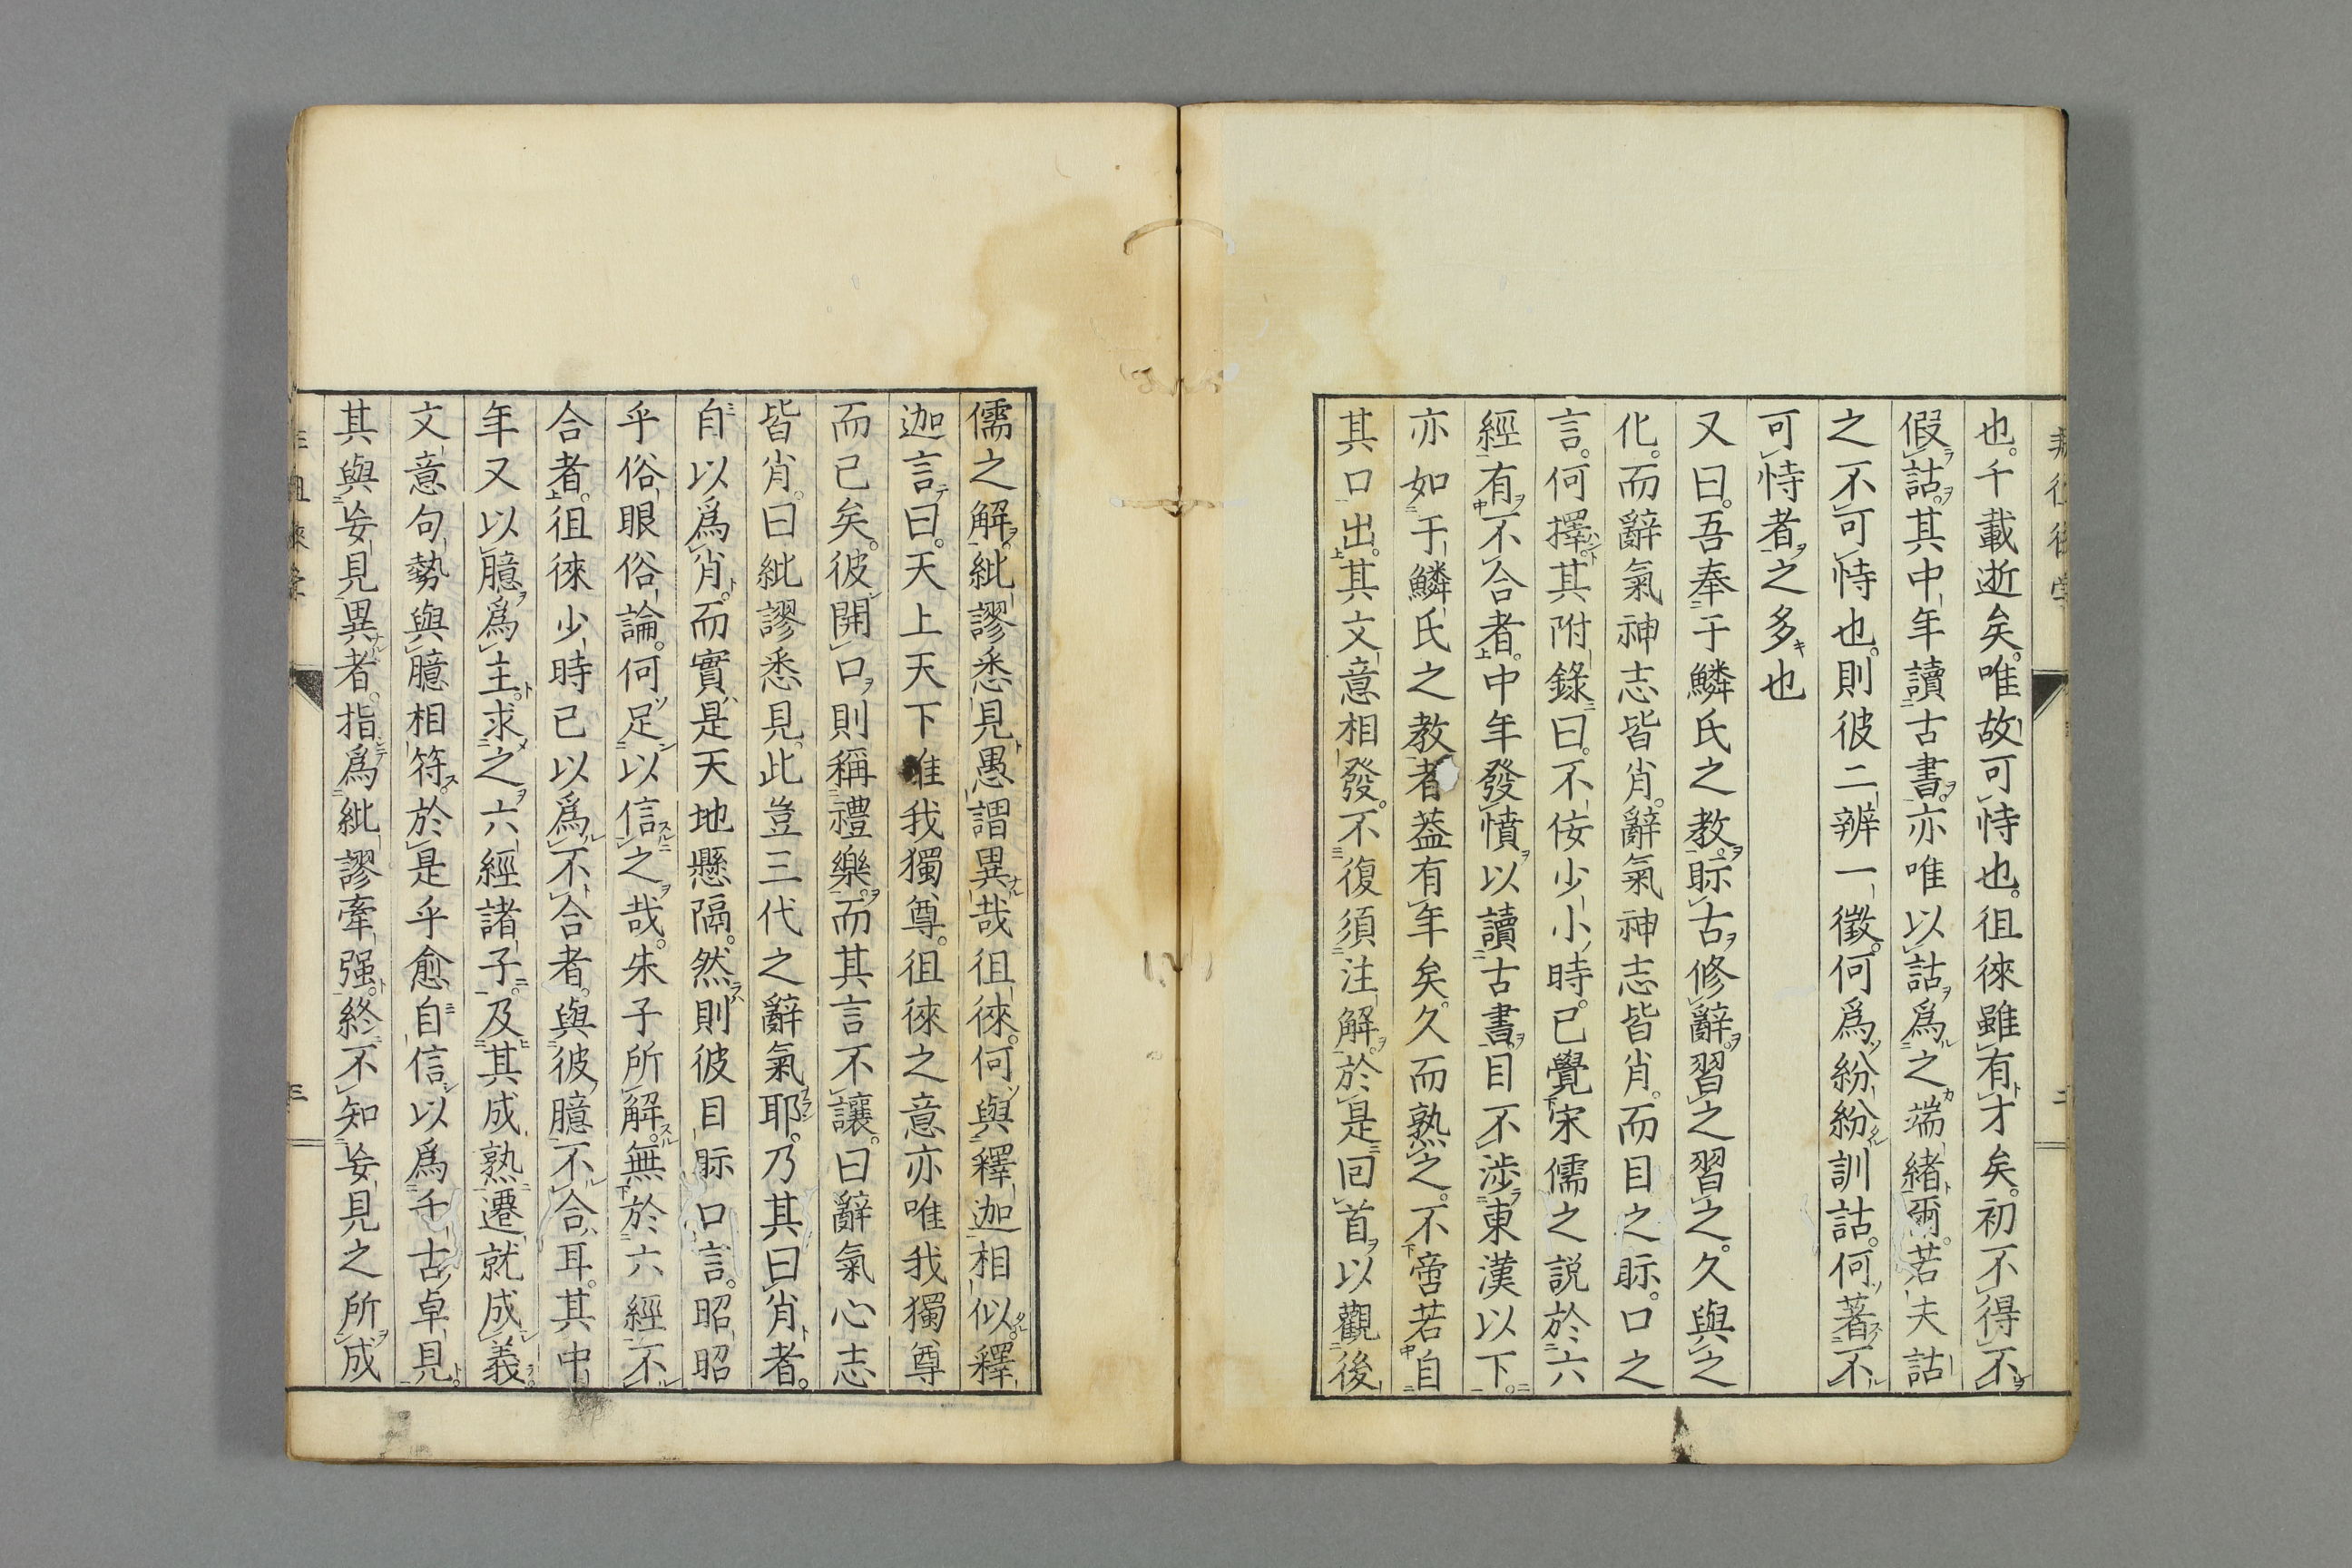 也。千載逝矣。唯故可恃也。徂徠雖有才矣。初不得不
假詁。其中年讀古書。亦唯以詁爲之端緒爾。若夫詁
之不可恃也。則彼二辨一徵。何爲紛紛訓詁。何著不
可恃者之多也
又曰。吾奉于鱗氏之教。眎古修辭。習之習之。久與之
化。而辭氣神志皆肖。辭氣神志皆肖。而目之眎。口之
言。何擇。其附錄曰。不佞少小時。已覺宋儒之説於六
經有不合者。中年發憤以讀古書。目不渉東漢以下。
亦如于鱗氏之教者葢有年矣。久而熟之。不啻若自
其口出。其文意相發。不復須注解。於是回首以觀後
儒之解。紕謬悉見。愚謂異哉徂徠。何與釋迦相似。釋
迦言曰。天上天下唯我獨尊。徂徠之意亦唯我獨尊
而已矣。彼開口則稱禮樂。而其言不讓。曰辭氣心志
皆肖。曰紕謬悉見。此豈三代之辭氣耶。乃其曰肖者。
自以爲肖。而實是天地懸隔。然則彼目眎口言。昭昭
乎俗眼俗論。何足以信之哉。朱子所解。無於六經不
合者。徂徠少時已以爲不合者。與彼臆不合耳。其中
年又以臆爲主。求之六經諸子。及其成熟遷就成義。
文意句勢與臆相符。於是乎愈自信以爲千古卓見。
其與妄見異者。指爲紕謬牽强。終不知妄見之所成